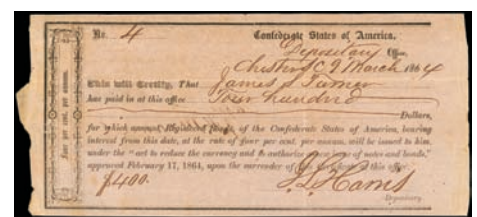 No. 4 Confederate States of America,
Depositary Office,
Chester SC 9 March 1864
This will Certify, That James S Turner
has paid in at this office Four hundred
Dollars,
for which amount, Registered Bonds, of the Confederate States of America, bearing
interest from this date, at the rate of four per cent. per annum, will be issued to him,
under the "act to reduce the currency and to authorize a new issue of notes and bonds,"
approved February 17, 1864, upon the surrender of this at this office.
$400.
Depositary.
Four per cent. per annum.